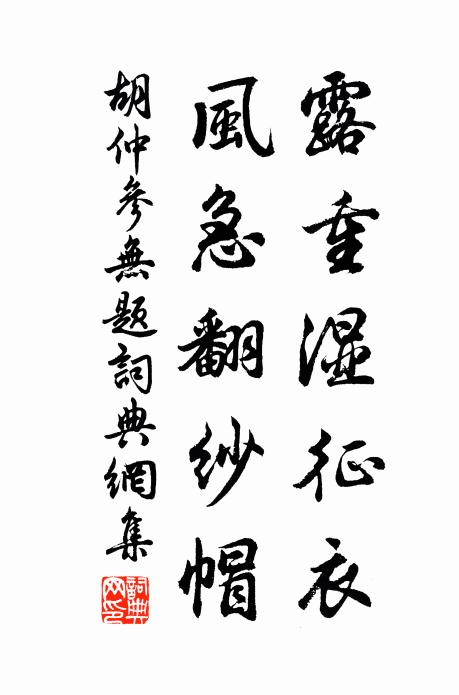 露重湿征衣
風急翻紗帽
胡仲參無題詞典網集
詞典網印